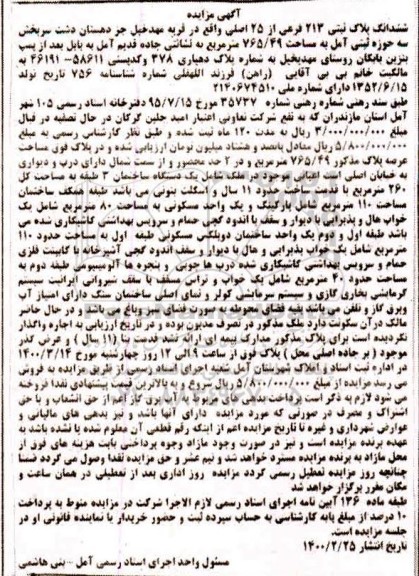 آگهی مزایده
ششدانگ پلاک ثبتی ۲۱۳ فرعی از ۲۵ اصلی واقع در قریه مهدخیل جز دهستان دشت سربخش
سه حوزه ثبتی آمل به مساحت ۷۶۵/۴۹ مترمربع به نشانی جاده قدیم آمل به بابل بعد از پمپ
بنزین بایگان روستای مهدیخیل به شماره پلاک دهیاری ۳۷۸ وکدپستی ۵۸۶۱۱- ۴۶۱۹۱ به
مالکیت خانم بی بی آقایی (راهن) فرزند اللهقلی شماره شناسنامه ۷۵۶ تاریخ تولد
۱۳۵۲/۶/۱۵ دارای شماره ملی ۲۱۴۰۶۷۴۵۱۰
طبق سند رهنی شماره رهنی شماره ۳۵۷۳۷ مورخ ۹۵/۷/۱۵ دفترخانه اسناد رسمی ۱۰۵ شهر
آمل استان مازندران که به نفع شرکت تعاونی اعتبار امید جلین گرگان در حال تصفیه در قبال
مبلغ ۳/۰۰۰/۰۰۰/۰۰۰ ریال به مدت ۱۲۰ ماه ثبت شده و طبق نظر کارشناس رسمی به مبلغ
۵/۸۰۰/۰۰۰/۰۰۰ ریال معادل پانصد و هشتاد میلیون تومان ارزیابی شده و در پلاک فوق مساحت
عرصه پلاک مذکور ۷۶۵/۴۹ مترمربع و در ۲ حد محصور و از سمت شمال دارای درب و دیواری
به خیابان اصلی است اعیانی موجود در ملک شامل یک دستگاه ساختمان ۳ طبقه به مساحت کل
۲۶۰ مترمربع با قدمت ساخت حدود ۱۱ سال و اسکلت بتونی می باشد طبقه همکف ساختمان
مساحت ۱۱۰ مترمربع شامل پارکینگ و یک واحد مسکونی به مساحت ۸۰ مترمربع شامل یک
خواب هال و پذیرایی با دیوار و سقف با اندود گچی حمام و سرویس بهداشتی کاشیکاری شده می
باشد طبقه اول و دوم یک واحد ساختمان دوبلکس مسکونی طبقه اول به مساحت حدود ۱۱۰
مترمربع شامل یک خواب پذیرایی و هال با دیوار و سقف اندود گچی آشپزخانه با کابینت فلزی
حمام و سرویس بهداشتی کاشیکاری شده درب ها چوبی و پنجره ها آلومینیومی طبقه دوم به
مساحت حدود ۴۰ مترمربع شامل یک خواب و تراس مسقف با سقف شیروانی ایرانیت سیستم
گرمایشی بخاری گازی و سیستم سرمایشی کولر و نمای اصلی ساختمان سنگ دارای امتیاز آب
وبرق گاز و تلفن می باشد بقیه فضای محوطه به صورت فضای سبز وباغ می باشد و در حال حاضر
مالک درآن سکونت دارد ملک مذکور در تصرف مدیون بوده و در تاریخ ارزیابی به اجاره واگذار
نگردیده است برای پلاک مذکور مدارک بیمه ای ارائه نشد قدمت بنا (۱۱ سال) و عرض گذر
موجود (بر جاده اصلی محل) پلاک فوق از ساعت ۹ الی ۱۲ روز چهارشنبه مورخ ۱۴۰۰/۳/۱۴
در اداره ثبت اسناد و املاک شهرستان آمل شعبه اجرای اسناد رسمی از طریق مزایده به فروش
می رسد مزایده از مبلغ ۵/۸۰۰/۰۰۰/۰۰۰ ریال شروع و به بالاترین قیمت پیشنهادی نقدا فروخته
می شود لازم به ذکر است پرداخت بدهی های مربوط به آب برق گاز اعم از حق انشعاب و یا حق
اشتراک و مصرف در صورتی که مورد مزایده دارای آنها باشد و نیز بدهی های مالیاتی و
عوارض شهرداری و غیره تا تاریخ مزایده اعم از اینکه رقم قطعی آن معلوم شده یا نشده باشد به
عهده برنده مزایده است و نیز در صورت وجود مازاد وجوه پرداختی بابت هزینه های فوق از
محل مازاد به برنده مزایده مسترد خواهد شد و نیم عشر و حق مزایده نقدا وصول می گردد ضمنا
چنانچه روز مزایده تعطیل رسمی گردد مزایده روز اداری بعد از تعطیلی در همان ساعت و
مکان مقرر برگزار خواهد شد
طبقه ماده ۱۳۶ آیین نامه اجرای اسناد رسمی لازم الاجرا شرکت در مزایده منوط به پرداخت
۱۰ درصد از مبلغ پایه کارشناسی به حساب سپرده ثبت و حضور خریدار یا نماینده قانونی او در
جلسه مزایده است.
تاریخ انتشار ۱۴۰۰/۲/۲۵
مسئول واحد اجرای اسناد رسمی آمل -بنی هاشمی